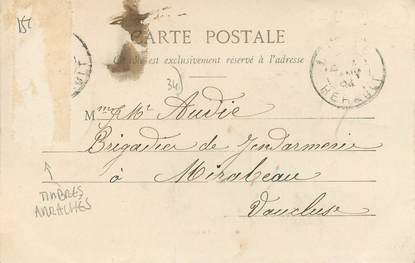 15c
CARTE POSTALE
Ce côté est exclusivement réservé à l'adresse
34
HÉRAULT
Mme & Mr Audié
Brigadier de Gendarmerie
à Mirabeau
Vaucluse
TIMBRES
ARRACHÉS